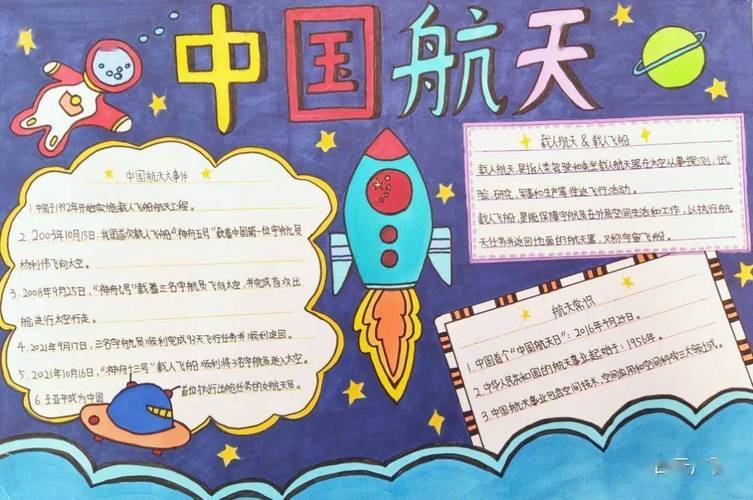 中国航天
中国航天大事件
1.中国于1992年开始实施载人飞船航天工程。
2.2003年10月15日,我国首次载人飞船“神舟五号”载着中国第一位宇航员
杨利伟飞向太空。
3.2008年9月25日,“神舟七号”载着三名宇航员飞向太空,并完成首次出
舱进行太空行走。
4.2021年9月17日,三名宇航员顺利完成93天飞行任务并顺利返回。
5.2021年10月16日,“神舟十三号”载人飞船顺利将3名宇航员送入太空。
6.王亚平成为中国 首位执行出舱任务的女航天员。
载人航天&载人飞船
载人航天,是指人类驾驶和乘坐载人航天器在太空从事探测,试
验,研究,军事和生产等往返飞行活动。
载人飞船,是能保障宇航员在外层空间生活和工作,以执行航
天任务并返回地面的航天器,又称宇宙飞船。
航天常识
1.中国首个“中国航天日”:2016年4月24日。
2.中华人民共和国的航天事业起始于:1956年。
3.中国航天事业包含空间技术,空间应用和空间科学三大领域。